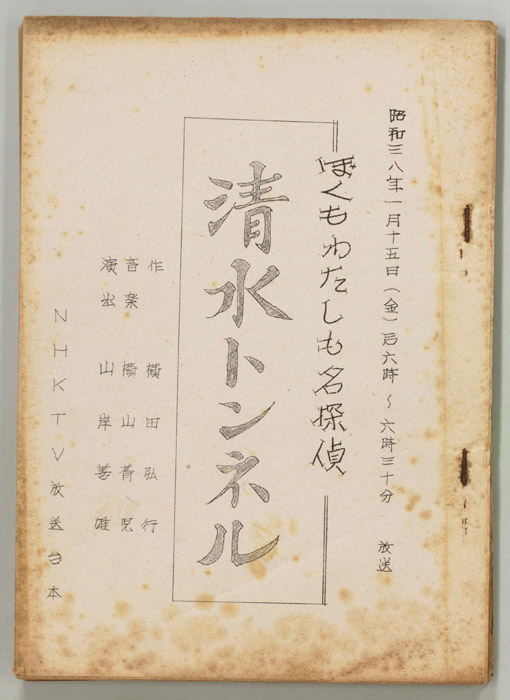 昭和三八年一月十五日(金)后六時～六時三十分 放送
ぼくもわたしも名探偵
清水トンネル
作 横田弘行
音楽 横山菁児
演出 山岸善雄
NHKTV放送台本